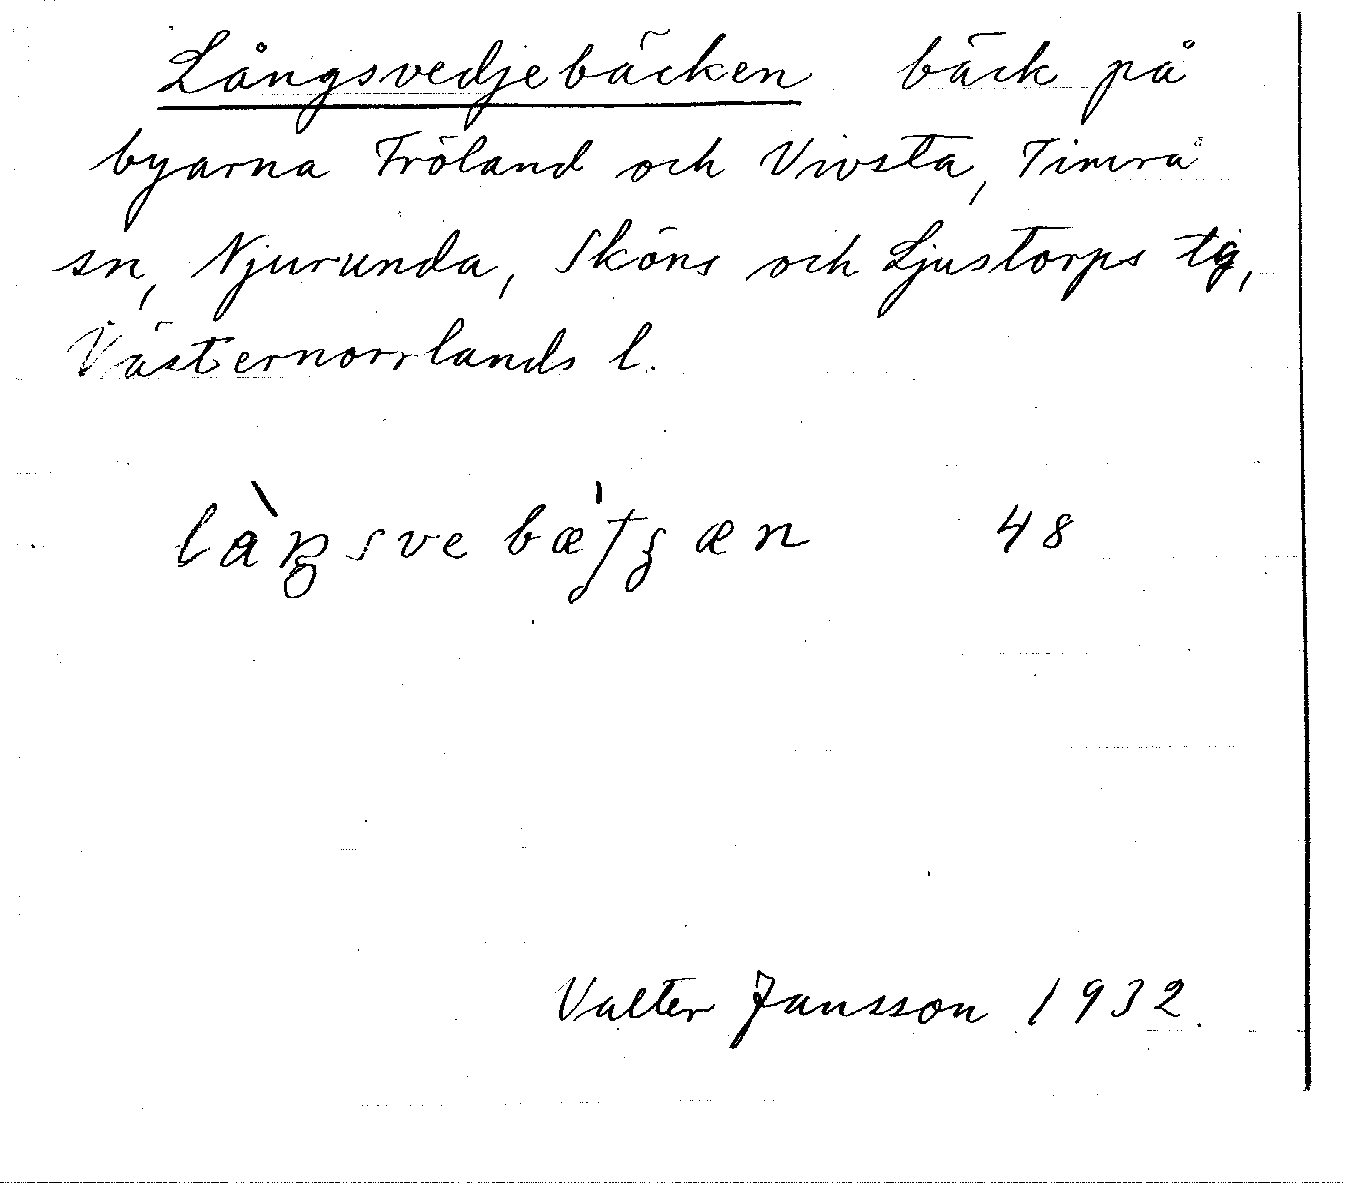 Långsvedjebäcken bäck på
byarna Fröland och Vivsta, Timrå
sn, Njurunda, Sköns och Ljustorps tg,
Västernorrlands l.
48
Valter Jansson 1932.